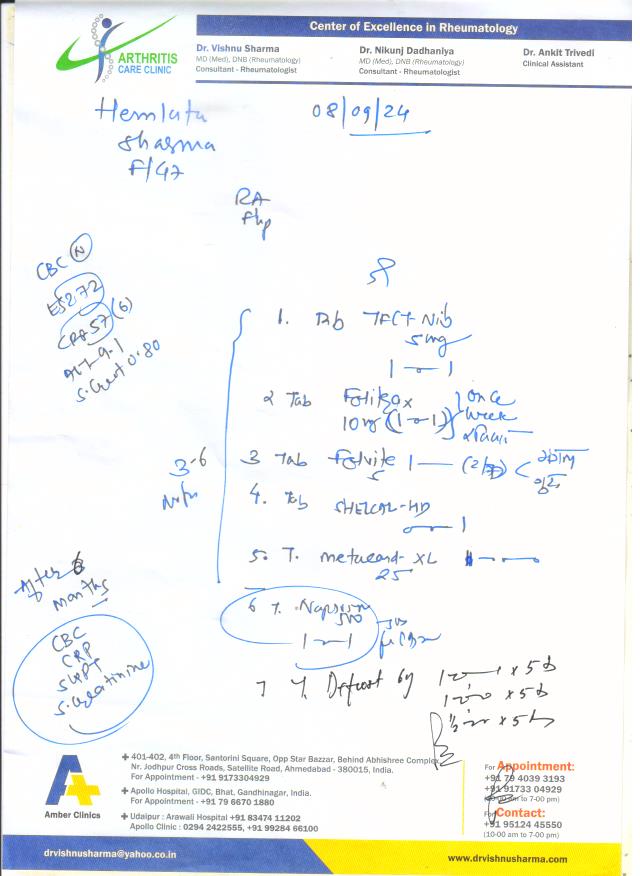 Center of Excellence in Rheumatology
ARTHRITIS
CARE CLINIC
Dr. Vishnu Sharma
MD (Med), DNB (Rheumatology)
Consultant - Rheumatologist
Dr. Nikunj Dadhaniya
MD (Med), DNB (Rheumatology)
Consultant - Rheumatologist
Dr. Ankit Trivedi
Clinical Assistant
Hemlata
Sharma
F/47
08/09/24
RA
CBC (N)
CRP 57 (6)
S. Creat 0.80
1. Tab TFCT-Nib
5mg
1 - 1
2 Tab Folitrax
10mg (1 - 1)
once
week
3 Tab Folvite 1
5
4. Tab SHELCAL-HD
1
5. T. Metacard-XL
25
3-6
6 T. Naprosyn
500
1 - 1
After 6
months
CBC
CRP
SGPT
S. Creatinine
7 T. Defcort 6mg
1 x 5d
1 x 5d
½ x 5d
Amber Clinics
401-402, 4th Floor, Santorini Square, Opp Star Bazzar, Behind Abhishree Complex,
Nr. Jodhpur Cross Roads, Satellite Road, Ahmedabad - 380015, India.
For Appointment - +91 9173304929
Apollo Hospital, GIDC, Bhat, Gandhinagar, India.
For Appointment - +91 79 6670 1880
Udaipur : Arawali Hospital +91 83474 11202
Apollo Clinic : 0294 2422555, +91 99284 66100
For Appointment:
+91 79 4039 3193
+91 91733 04929
(10:00 am to 7-00 pm)
For Contact:
+91 95124 45550
(10-00 am to 7-00 pm)
drvishnusharma@yahoo.co.in
www.drvishnusharma.com